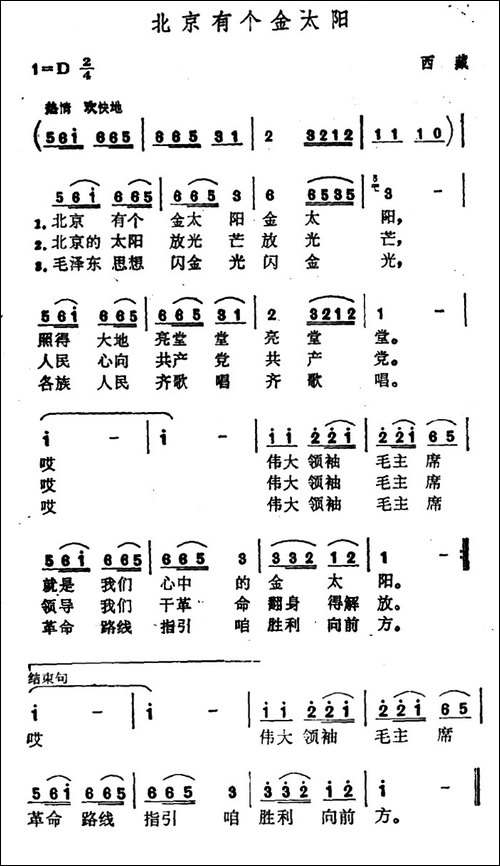 北京有个金太阳
1=D 2/4 西藏
热情 欢快地
(561̇ 665 | 665 31 | 2 3212 | 11 10)
561̇ 665 | 665 3 | 6 6535 | 3 - |
1.北京 有个 金太 阳 金 太 阳,
2.北京的 太阳 放光 芒 放 光 芒,
3.毛泽东 思想 闪金 光 闪 金 光,
561̇ 665 | 665 31 | 2 3212 | 1 - |
照得 大地 亮堂 堂 亮 堂 堂。
人民 心向 共产 党 共 产 党。
各族 人民 齐歌 唱 齐 歌 唱。
1̇ - | 1̇ - | 1̇1̇ 2̇2̇1̇ | 2̇2̇1̇ 65 |
哎 伟大 领袖 毛主 席
哎 伟大 领袖 毛主 席
哎 伟大 领袖 毛主 席
561̇ 665 | 665 3 | 3̇3̇2̇ 1̇2̇ | 1̇ - |
就是 我们 心中 的 金 太 阳。
领导 我们 干革 命 翻身 得解 放。
革命 路线 指引 咱 胜利 向前 方。
结束句
1̇ - | 1̇ - | 1̇1̇ 2̇2̇1̇ | 2̇2̇1̇ 65 |
哎 伟大 领袖 毛主 席
561̇ 665 | 665 3 | 3̇3̇2̇ 1̇2̇ | 1̇ - |
革命 路线 指引 咱 胜利 向前 方。